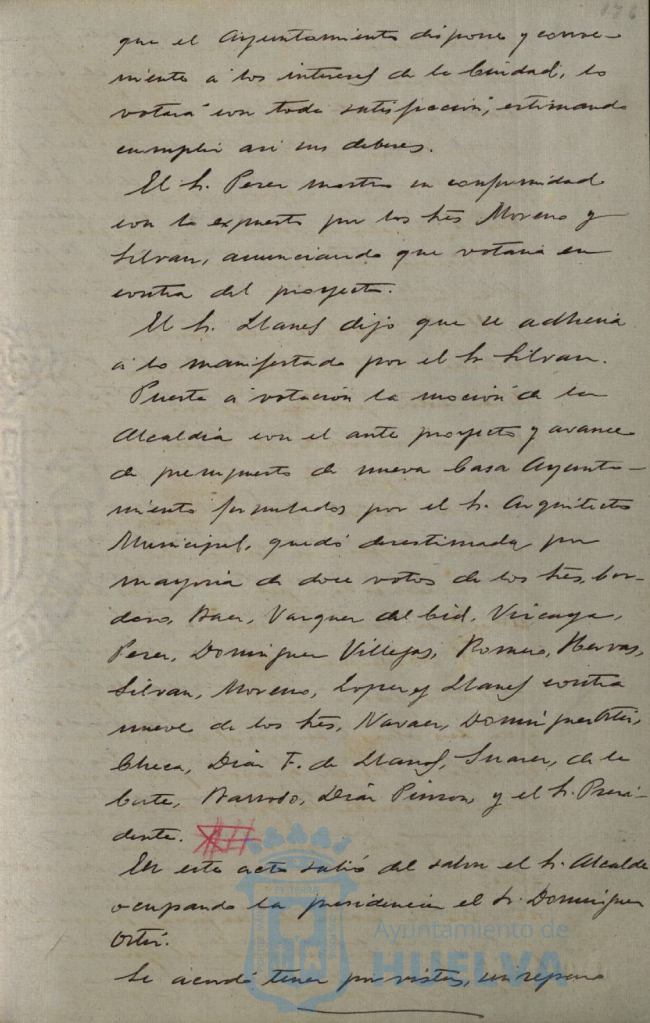 176
que el Ayuntamiento dispone y conve-
niente a los intereses de la Ciudad, lo
votará con toda satisfacción, estimando
cumplir así sus deberes.
El Sr. Perez mostro su conformidad
con lo expuesto por los Sres Moreno y
Silvan, anunciando que votaria en
contra del proyecto.
El Sr. Llanes dijo que se adheria
a lo manifestado por el Sr Silvan.
Puesta a votación la moción de la
Alcaldia con el ante proyecto y avance
de presupuesto de nueva Casa Ayunta-
miento formulados por el Sr. Arquitecto
Municipal, quedó desestimada por
mayoria de doce votos de los Sres, Cor-
dero, Vazquez del Cid, Vizcaya,
Perez, Dominguez Villegas, Romero, Hervas,
Silvan, Moreno, Lopez y Llanes contra
nueve de los Sres, Dominguez Ortiz,
Checa, Diaz F. de Llanos, Suarez, de la
Corte, Barroso, Diaz Pinzon y el Sr. Presi-
dente.
En este acto salió del salon el Sr. Alcalde
ocupando la presidencia el Sr. Dominguez
Ortiz.
Se acordó tener por vistas, un reparo
Ayuntamiento de
HUELVA